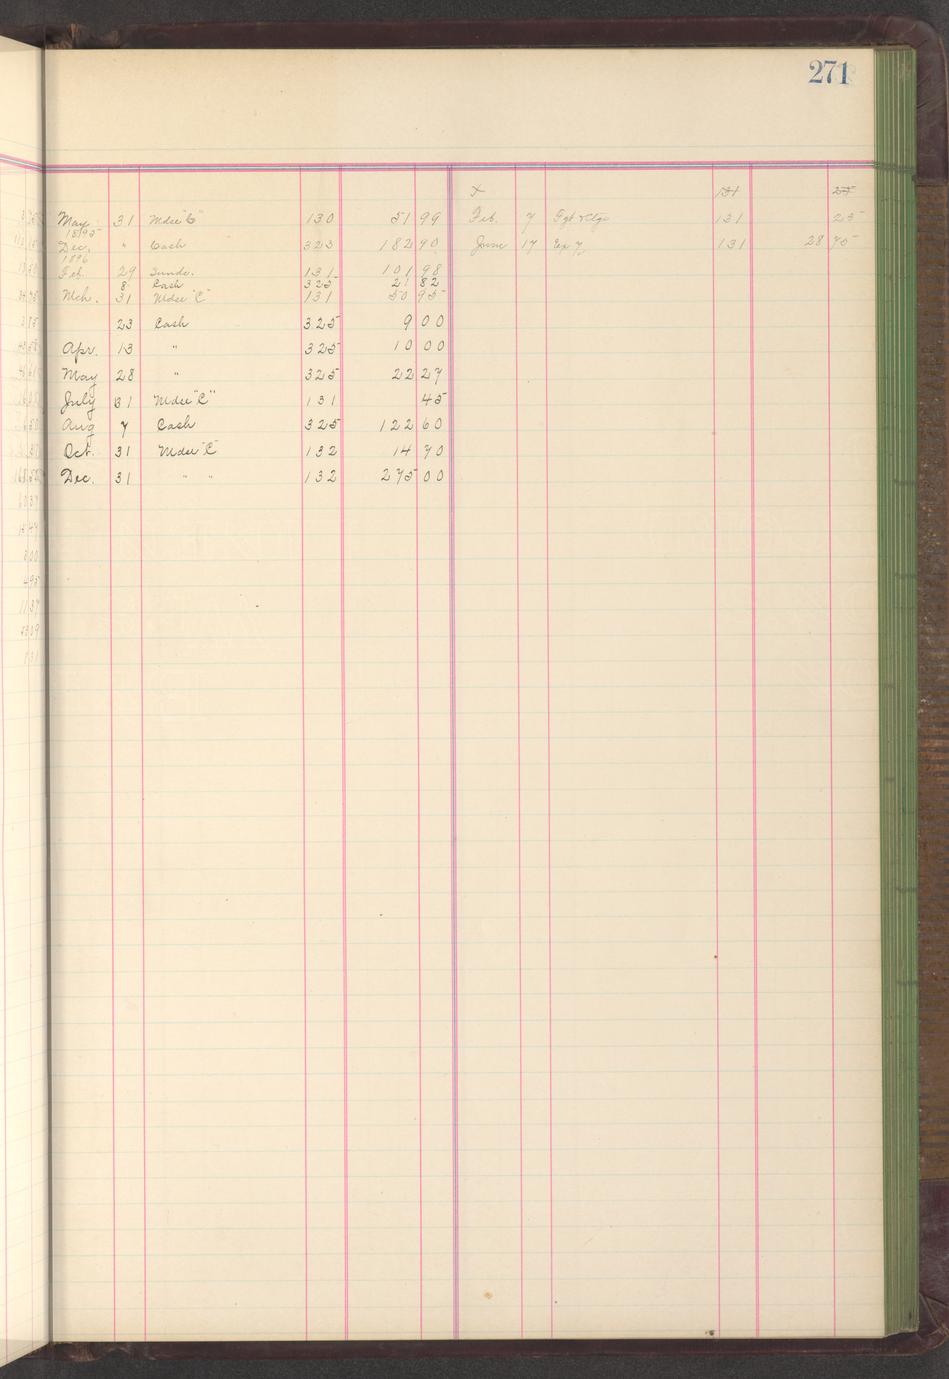 271
May 31 Mdse "C" 130 51 99
1895
Dec. " Cash 323 182 90
1896
Feb. 29 Sunds. 131 101 98
8 Cash 325 21 82
Mch. 31 Mdse "C" 131 50 95
23 Cash 325 9 00
Apr. 13 " 325 10 00
May 28 " 325 22 27
July 31 Mdse "C" 131 45
Aug 7 Cash 325 122 60
Oct. 31 Mdse "C" 132 14 70
Dec. 31 " " 132 275 00
x 131 25
Feb. 7 Fgt & Chgs 131 25
June 17 131 28 75